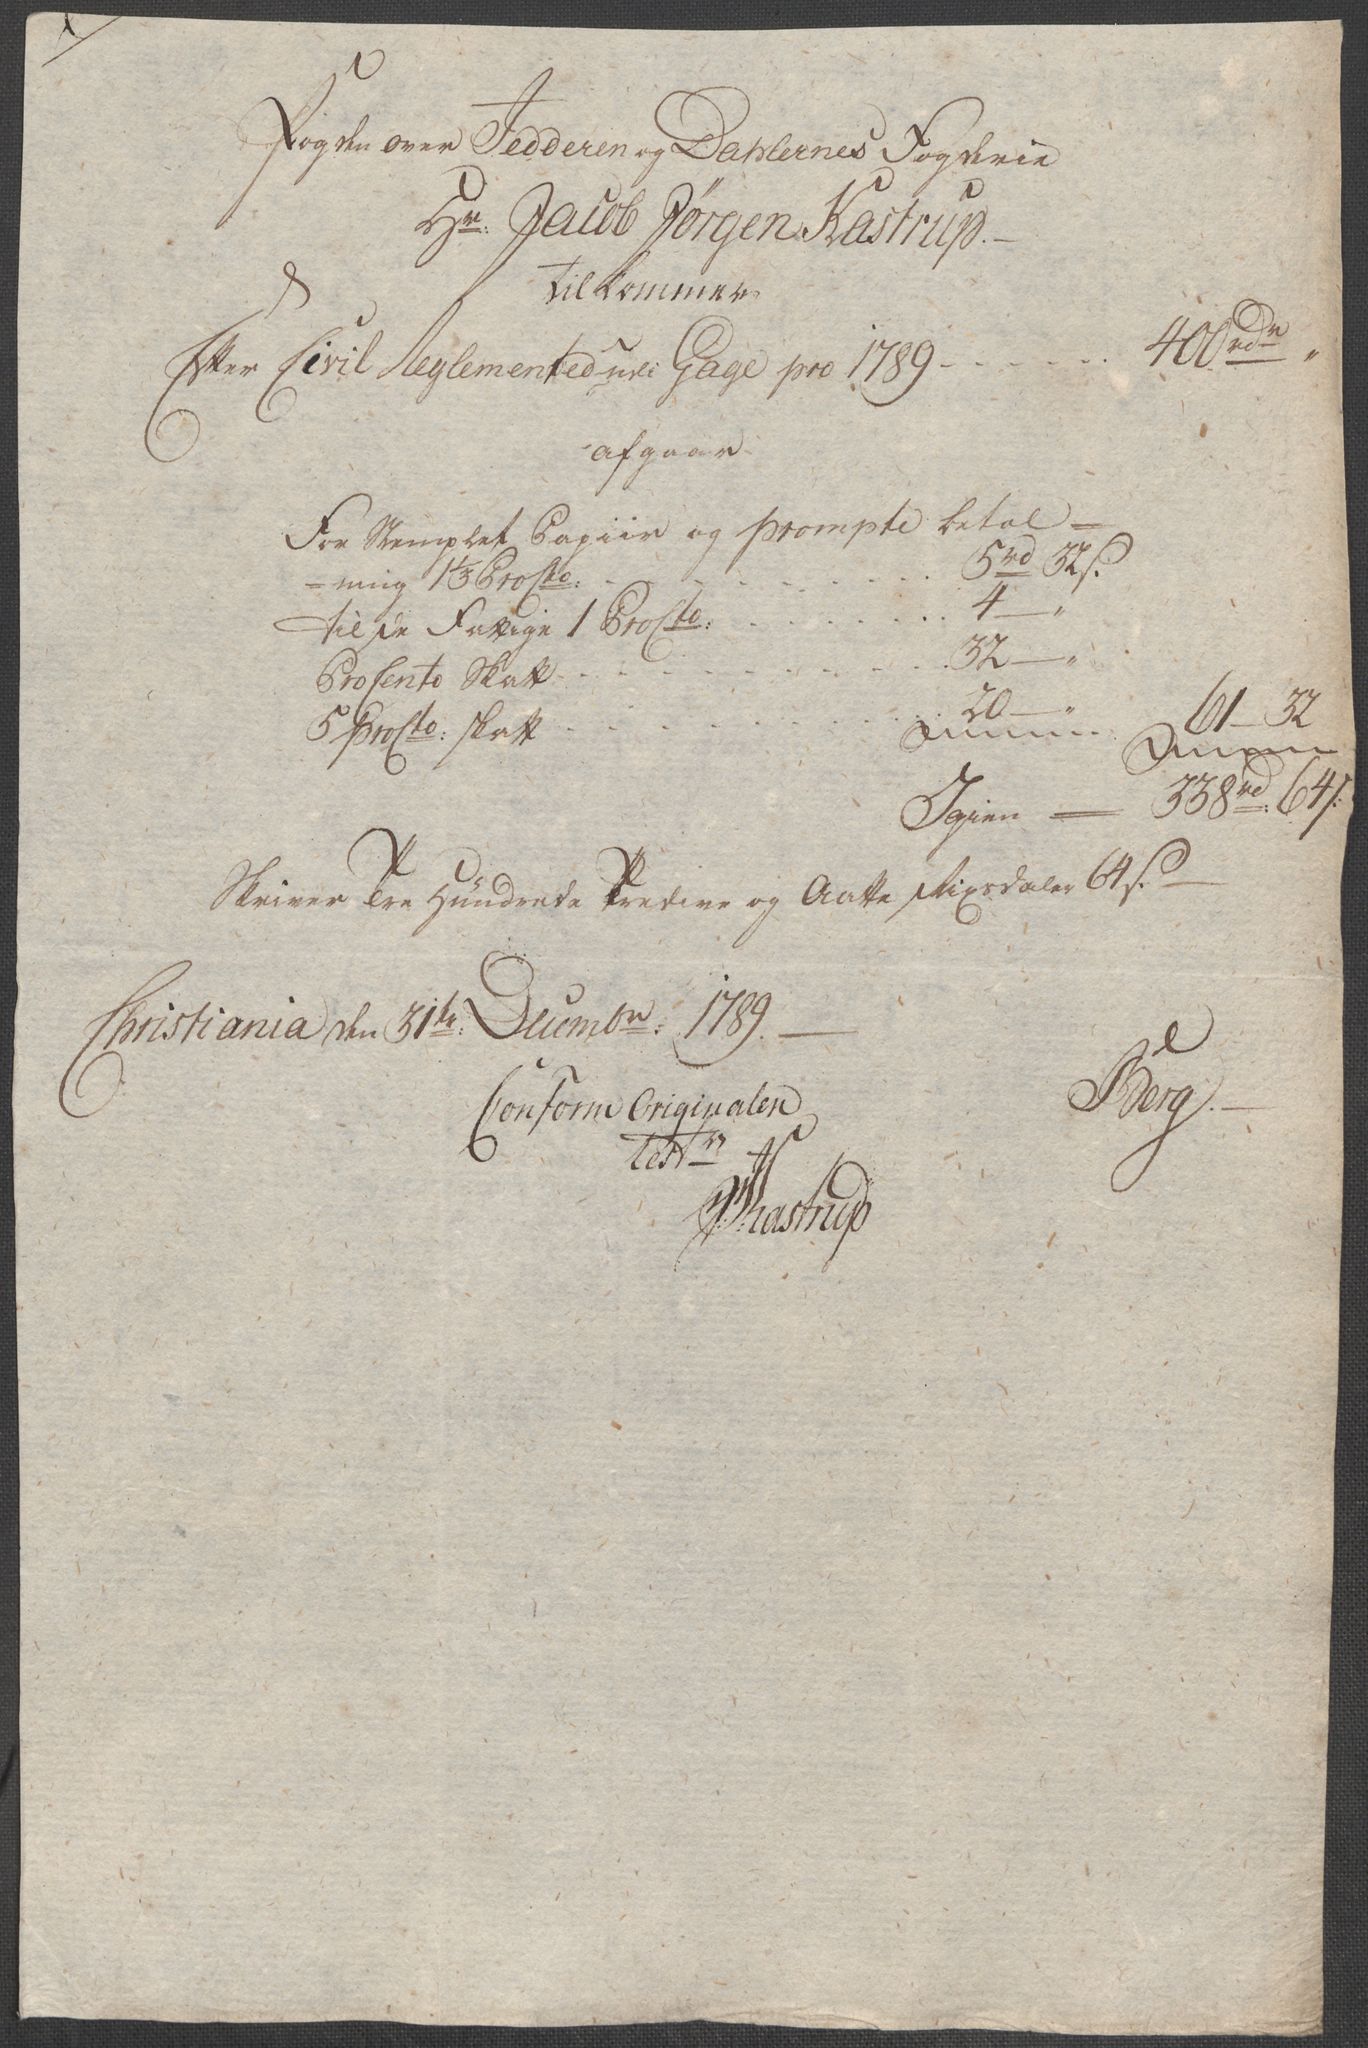 1
Fogden over Jedderen og Dahlernes Fogderie
Hr: Jacob Jørgen Kastrup.—
tilkommer
Efter Civil Reglemented udi Gage pro 1789 - - - - - - 400 rdr "
afgaar
For Stemplet Papiir og prompte betal=
=ning 1⅓ ProCto: - - - - - - - - - 5 rd 32 s.
til de Fattige 1 ProCto: - - - - - - - 4 — "
ProCento Skatt - - - - - - - - - 32 — "
5 ProCto: skatt - - - - - - - - - 20 — " 61 — 32
Igien — 338 rd: 64 s:
Skriver Tre Hundrede Tredive og Aatte Rixsdaler 64 s. —
Christiania den 31te: Decembr: 1789. —
Berg. —
Conform Originalen
test:
JJKastrup